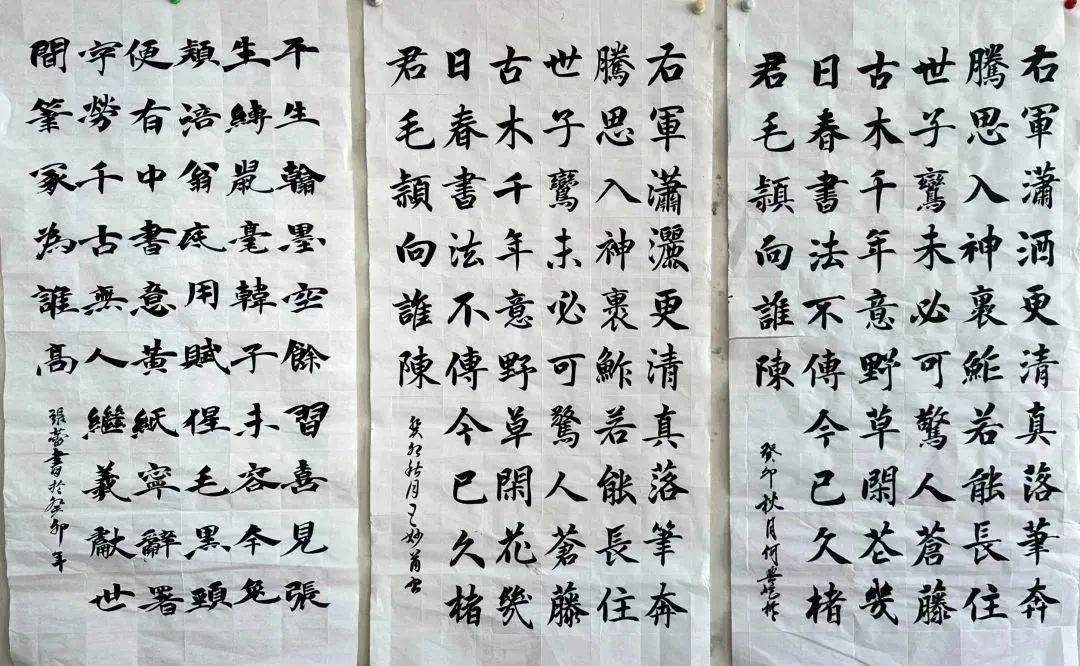 右軍瀟酒更清真落筆奔
騰思入神裏鮓若能長住
世子鸞未必可驚人蒼藤
古木千年意野草閑花幾
日春書法不傳今已久楮
君毛穎向誰陳
癸卯秋月何
右軍瀟灑更清真落筆奔
騰思入神裏鮓若能長住
世子鸞未必可驚人蒼藤
古木千年意野草閑花幾
日春書法不傳今已久楮
君毛穎向誰陳
癸卯秋月王妙
平生翰墨空餘習喜見張
生縛鼠毫韓子未容今兔
穎涪翁底用賦猩毛黑頭
便有中書意黃紙寧辭署
字勞千古無人繼羲獻世
間筆冢為誰高
張蕾書於癸卯年